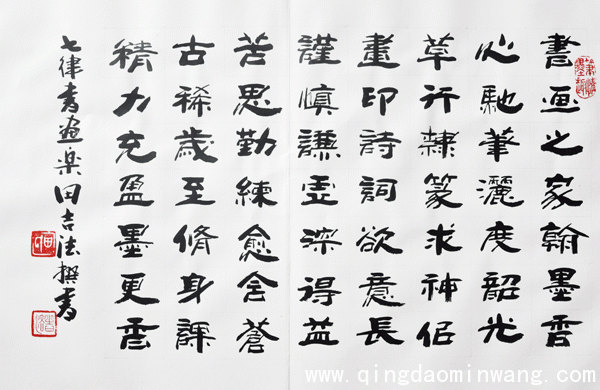 書画之家翰墨香
心馳筆灑度韶光
草行隸篆求神佀
畫印詩詞欲意長
謹慎謙虛深得益
苦思勤練愈含蒼
古稀歲至脩身課
精力充盈墨更
七律書畫楽田吉法撰書
www.qingdaominwang.com